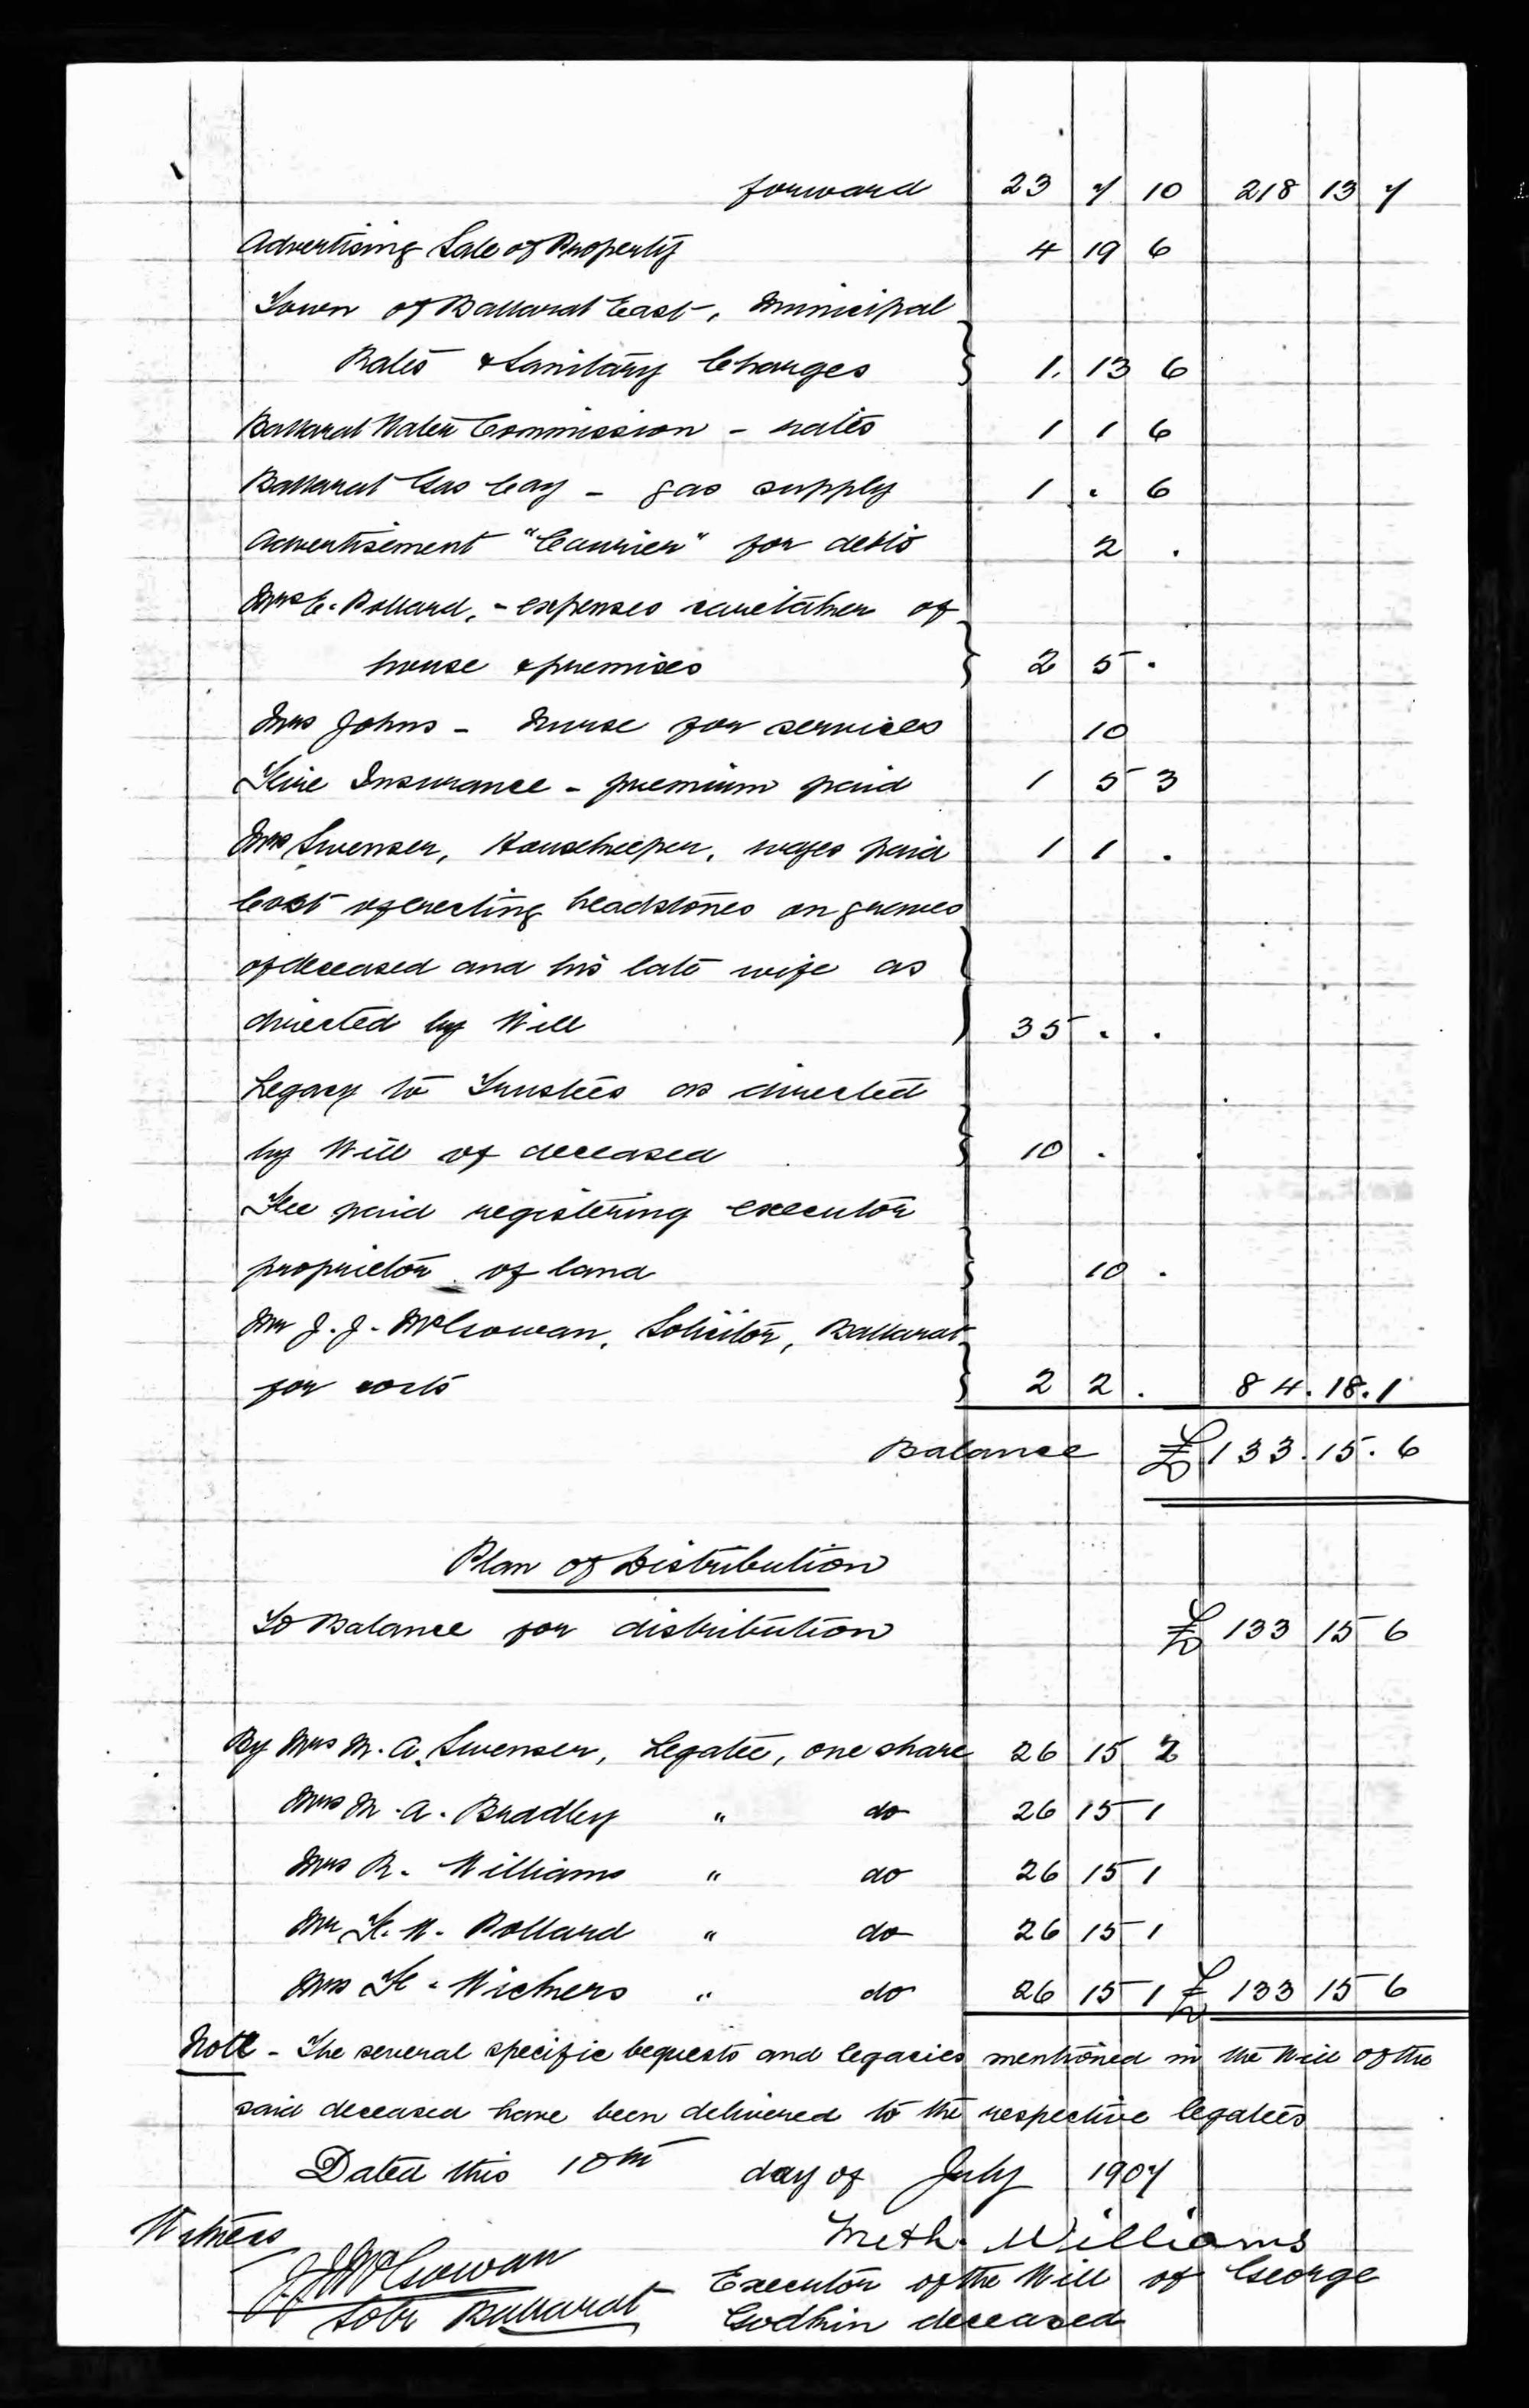 forward 23 7 10 218 13 7
Advertising Sale of Property 4 19 6
Town of Ballarat East, Municipal
Rates & Sanitary Charges } 1. 13 6
Ballarat Water Commission - rates 1 1 6
Ballarat Gas Coy - gas supply 1 . 6
Advertisement "Courier" for debts 2 .
Mrs E. Pollard, - expenses caretaker of
house & premises } 2 5 .
Mrs Johns - Nurse for services 10
Fire Insurance - premium paid 1 5 3
Mrs Swenser, Housekeeper, wages paid 1 1 .
Cost of erecting headstones on graves
of deceased and his late wife as
directed by Will } 35 . .
Legacy to Trustees as directed
by Will of deceased } 10 . .
Fee paid registering executor
proprietor of land } 10 .
Mr J. J. McGowan, Solicitor, Ballarat
for costs } 2 2 . 84. 18. 1
Balance £ 133. 15. 6
Plan of Distribution
To Balance for distribution £ 133 15 6
By Mrs M. A. Swenser, Legatee, one share 26 15 2
Mrs M. A. Bradley " do 26 15 1
Mrs R. Williams " do 26 15 1
Mr F. W. Pollard " do 26 15 1
Mrs F. Wichers " do 26 15 1 £ 133 15 6
Note - The several specific bequests and legacies mentioned in the Will of the
said deceased have been delivered to the respective legatees
Dated this 10th day of July 1907
Witness
Meth. Williams
J J McGowan
Executor of the Will of George
Solr Ballarat
Godkin deceased